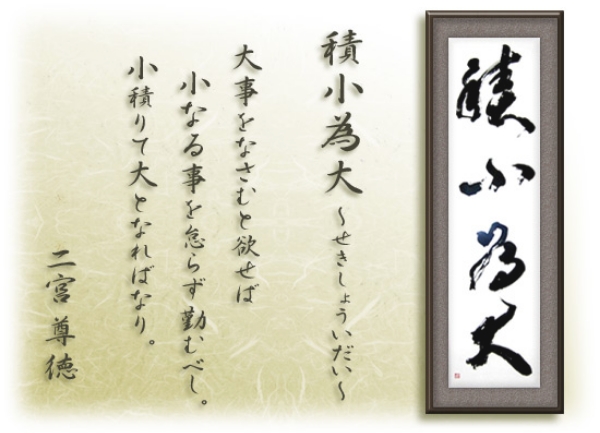 積小為大
積小為大 ~せきしょういだい~
大事をなさむと欲せば
小なる事を怠らず勤むべし。
小積りて大となればなり。
二宮尊徳